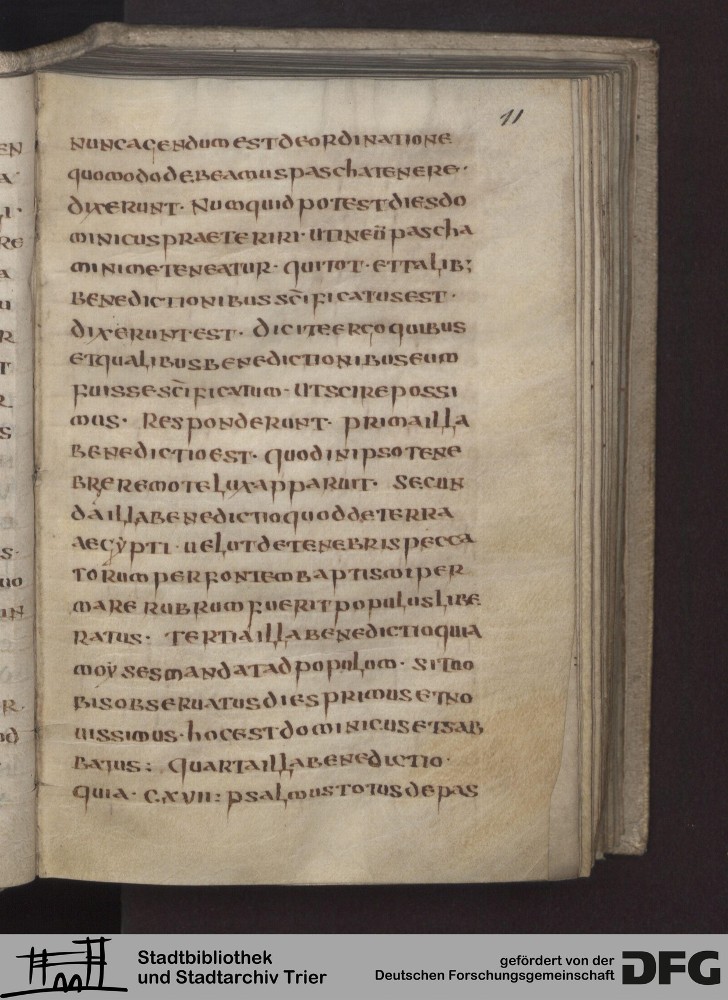 11
nuncagendumestdeordinatione
quomododebeamuspaschatenere·
dixerunt· Numquidpotestdiesdo
minicuspraeteriri· utineū pascha
minimeteneatur· quitot· ettalib;
benedictionibusscīficatusest·
dixerunt est· diciteergoquibus
etqualibusbenedictionibuseum
fuissescīficatum· utscirepossi
mus· Responderunt· primailla
benedictioest· quodinipsotene
breremotelux apparuit· Secun
daillabenedictioquoddeterra
aegẏpti· uelutdetenebrispecca
torumperfontembaptismiper
marerubrumfueritpopulusLibe
ratus· tertiaillabenedictioquia
moẏsesmandatadpopulum· situo
bisobseruatusdiesprimusetno
uissimus· hocestdominicusetsab
batus: quartaillabenedictio·
quia· c.xvii: psalmustotusdepas
Stadtbibliothek
und Stadtarchiv Trier
gefördert von der
Deutschen Forschungsgemeinschaft
DFG